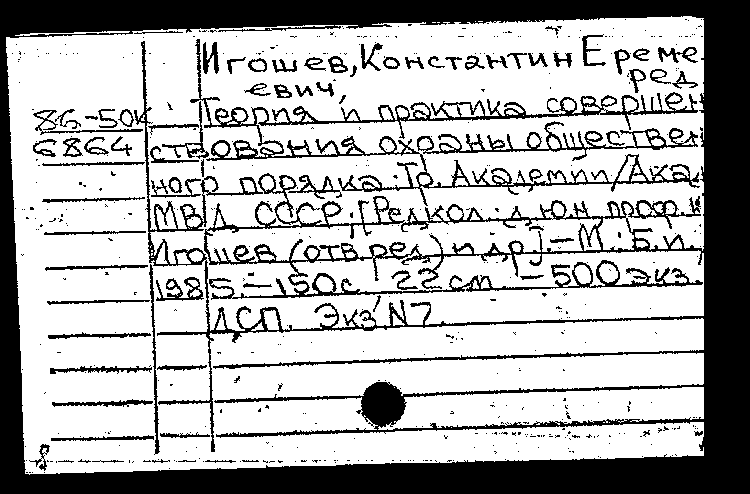 Игошев, Константин Ереме
евич, ред
86-50к Теория и практика совершен
6864 ствования охраны обществен
ного порядка: Тр. Академии/Акад
МВД СССР; [Редкол.: д.ю.н., проф.
Игошев (отв.ред.) и др.].-М.: Б.и.,
1985.-150с 22см -500экз.
ДСП. Экз N7.
8